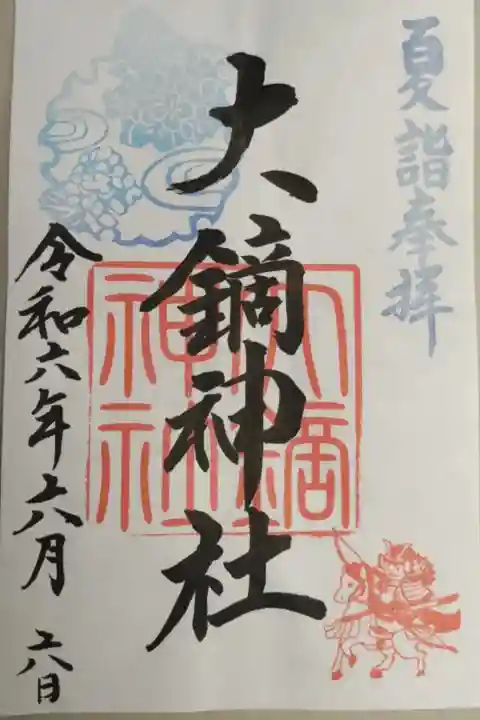 夏詣奉拝
大鏑神社
大鏑神社
令和六年六月六日